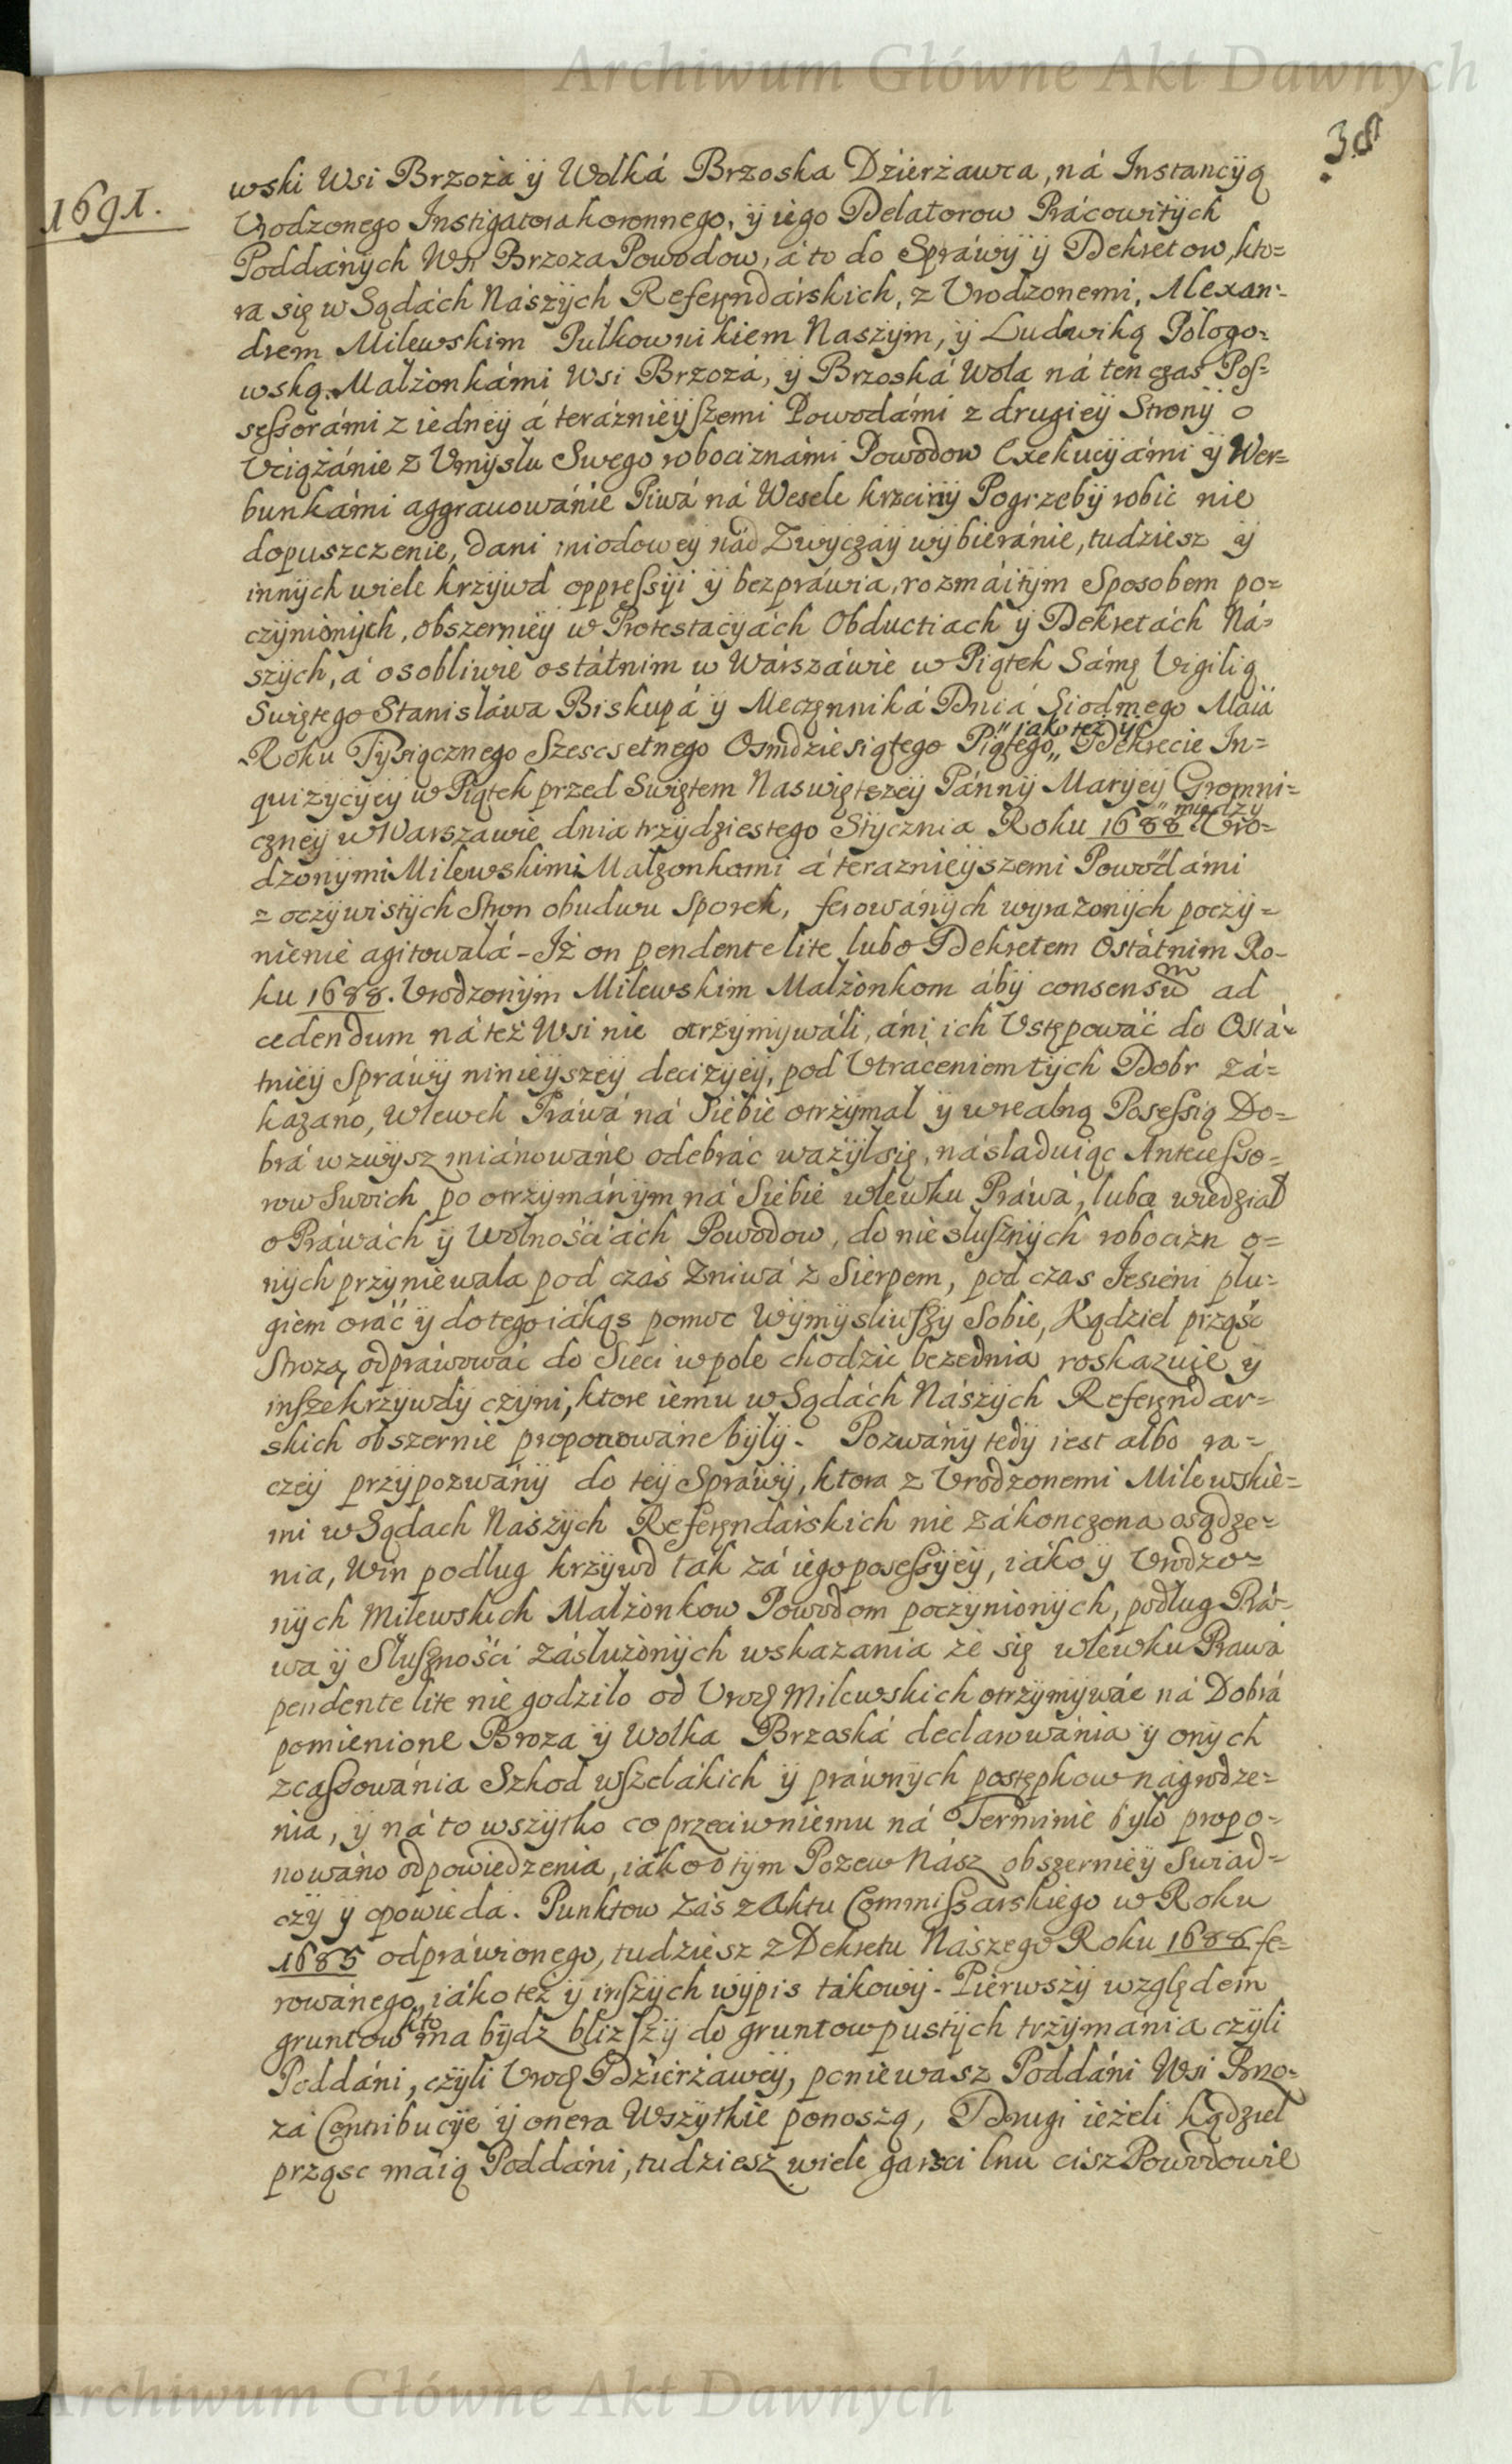 Archiwum Główne Akt Dawnych
38
1691.
wski Wsi Brzoza ÿ Wolká Brzoska Dzierżawca, ná Instancÿą
Vrodzonego Instigatora koronnego, ÿ iego Delatorow Prácowitÿch
Poddánÿch Wsi Brzoza Powodow, á to do Spráwÿ ÿ Dekretow, kto=
ra się w Sądách Nászÿch Referęndárskich, z Vrodzonemi, Alexan=
drem Milewskim Pulkownikiem Naszÿm, ÿ Ludwiką Pologo=
wską Malżonkámi Wsi Brzozá, ÿ Brzoská Wola ná ten czas Pos=
sessorámi z iedneÿ á teráznieÿszemi Powodámi z drugieÿ Stronÿ o
Vciążánie z Vmÿslu Swego robociznámi Powodow Exekucÿámi ÿ Wer=
bunkámi aggrauowánie Piwá ná Wesele krzcinÿ Pogrzebÿ robic nie
dopuszczenie, dani miodoweÿ nád Zwÿczaÿ wÿbieránie, tudziesz ÿ
innÿch wiele krzÿwd oppressÿi ÿ bezpráwia, rozmáitÿm Sposobem po=
czÿnionÿch, obszernieÿ w Protestacÿách Obductiach ÿ Dekretách Ná=
szÿch, á osobliwie ostátnim w Wárszáwie w Piątek Sámę Vigilią
Swiętego Stanisláwa Biskupá ÿ Męczęnniká Dniá Siodmego Máiá
Roku Tÿsiącznego Szescsetnego Osmdziesiątego Piątego „ iako też ÿ „ Dekrecie In=
quizÿcÿeÿ w Piątek przed Swiętem Naswiętszeÿ Pánnÿ Marÿeÿ Gromni=
czneÿ w Warszawie dnia trzÿdziestego Stÿcznia Roku 1688 „ międzÿ Vro=
dzonÿmi Milewskimi Malzonkami á teraznieÿszemi Powodámi
z oczÿwistÿch Stron obudwu Sporek, ferowánÿch wÿrazonÿch poczÿ=
nienie agitowalá - Iż on pendente lite lubo Dekretem Ostátnim Ro=
ku 1688. Vrodzonÿm Milewskim Malżonkom ábÿ consensu ad
cedendum ná też Wsi nie otrzÿmÿwáli, áni ich Vstępowác do Ostá=
tnieÿ Spráwÿ ninieÿszeÿ decizÿeÿ, pod Vtráceniem tÿch Dobr zá=
kazano, Wlewek Práwá ná Siebie otrzÿmal ÿ w realną Posessią Do=
brá wzwÿsz miánowáne odebrác ważÿl się, násladuiąc Antecesso=
row Swoich po otrzÿmánÿm ná Siebie wlewku Práwá, lubo wiedzial
o Práwách ÿ Wolnościách Powodow, do nieslusznÿch robocizn o=
nÿch przÿniewala pod czás Zniwá z Sierpem, pod czas Iesieni plu=
giem orác ÿ do tego iákąs pomoc Wÿmÿsliwszÿ Sobie, Kądziel prząść
Strozą odpráwowác do Sieci w pole chodzic bezednia roskazuie ÿ
insze krzÿwdÿ czÿni, ktore iemu w Sądách Nászÿch Referęndar=
skich obszernie proponowáne bÿlÿ. Pozwánÿ tedÿ iest albo ra=
czeÿ przÿpozwánÿ do teÿ Spráwÿ, ktora z Vrodzonemi Milewskie=
mi w Sądach Naszÿch Referęndárskich nie zákonczona osądze=
nia, Win podlug krzÿwd ták zá iego posessÿeÿ, iáko ÿ Vrodzo=
nÿch Milewskich Malżonkow Powodom poczÿnionÿch, podlug Prá=
wa ÿ Slusznośći záslużonÿch wskazania że się wlewku Prawá
pendente lite nie godzilo od Vrodz Milewskich otrzÿmÿwác ná Dobrá
pomienione Broza ÿ Wolka Brzoská declarowánia ÿ onÿch
zcassowánia Szkod wszelákich ÿ práwnÿch postępkow nágrodze=
nia, ÿ ná to wszÿtko co przeciwniemu ná Terminie bÿlo propo=
nowáno odpowiedzenia, iáko o tÿm Pozew Nász obszernieÿ Swiad=
czÿ ÿ opowiedá. Punktow Zás z Aktu Commissarskiego w Roku
1685 odpráwionego, tudziesz z Dekretu Nászego Roku 1688 fe=
rowánego, iáko też ÿ inszÿch wÿpis tákowÿ. Pierwszÿ względem
gruntow kto ma bÿdź blizszÿ do gruntow pustÿch trzÿmánia czÿli
Poddáni, czÿli Vrodz Dzierżáwcÿ, poniewasz Poddáni Wsi Brzo=
zá Contribucÿe ÿ onera Wszÿtkie ponoszą, Drugi ieżeli kądziel
prząsc maią Poddáni, tudziesz wiele garsci lnu cisz Powodowie
Archiwum Główne Akt Dawnych